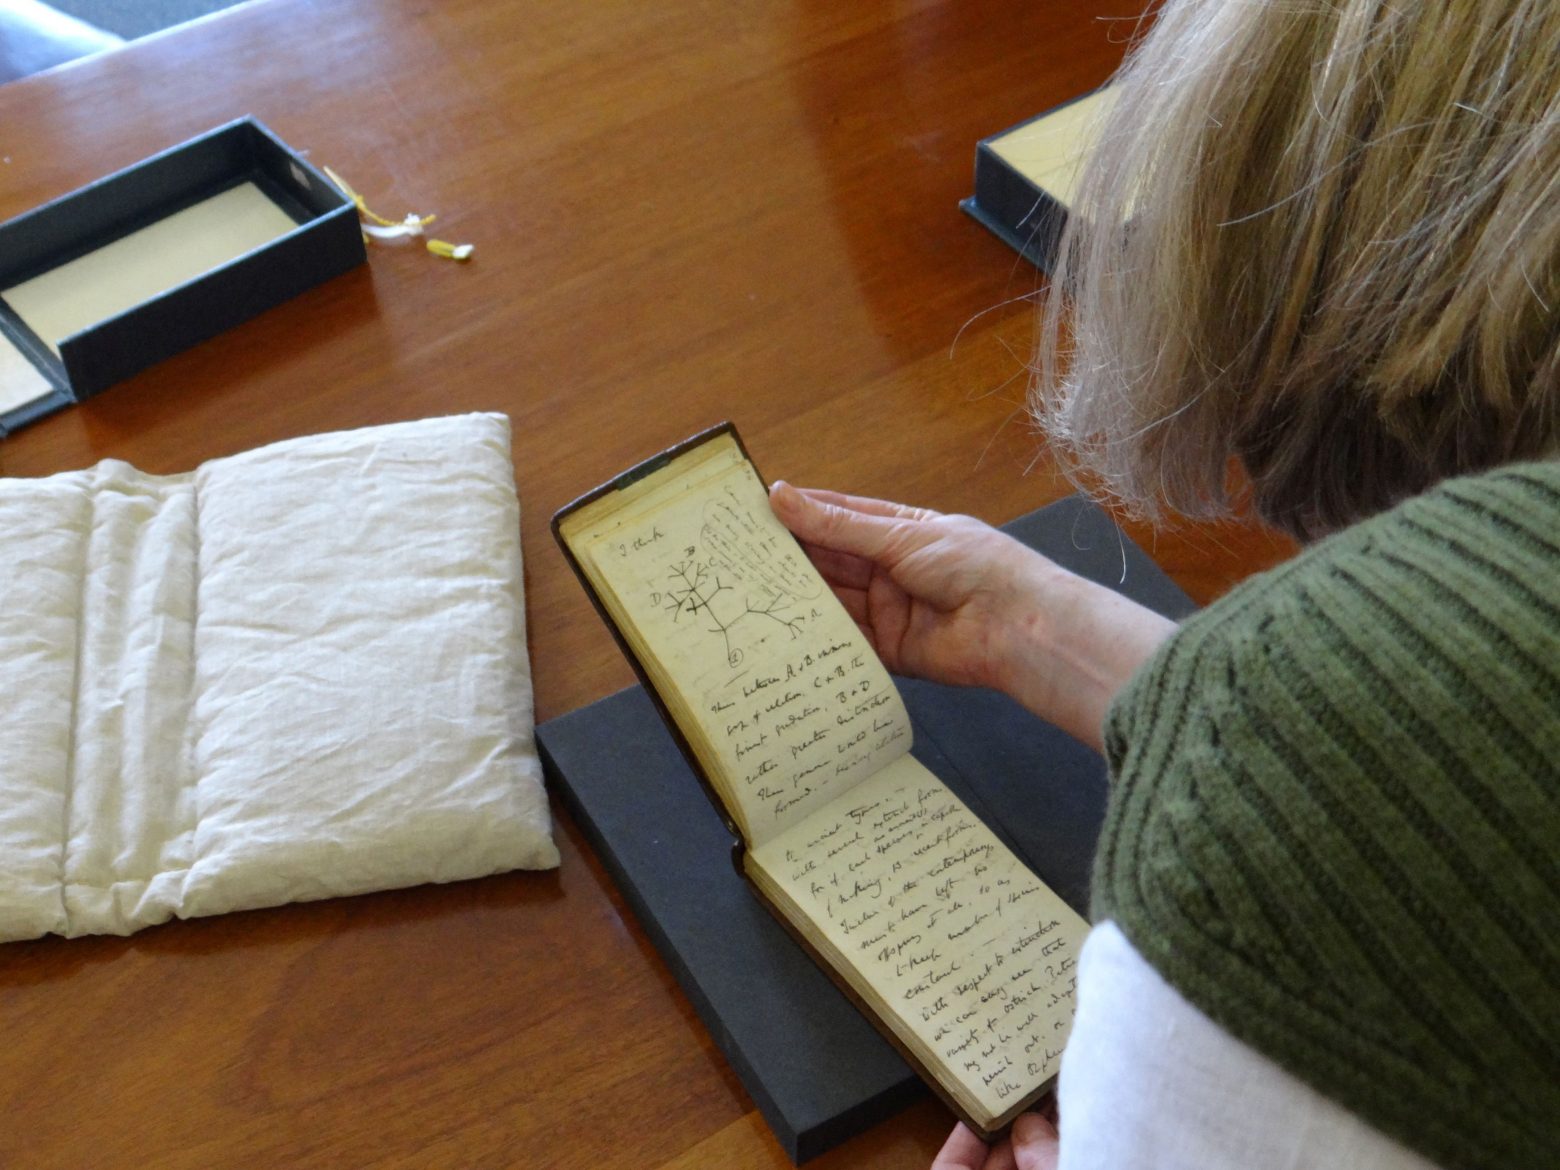 I think
B
C
D
A
1
Thus between A & B immense
gap of relation. C & B. the
finest gradation, B & D
rather greater distinction
Thus genera would be
formed. — bearing relation
to ancient types. —
with several extinct forms
for if each species an ancient is capable
of making, 13 recent forms.
Twelve of the contemporarys
must have left no
offspring at all, so as
to keep number of species
constant. —
With respect to extinction
we can easy see that
variety of ostrich
may not be well
perish out, or
like